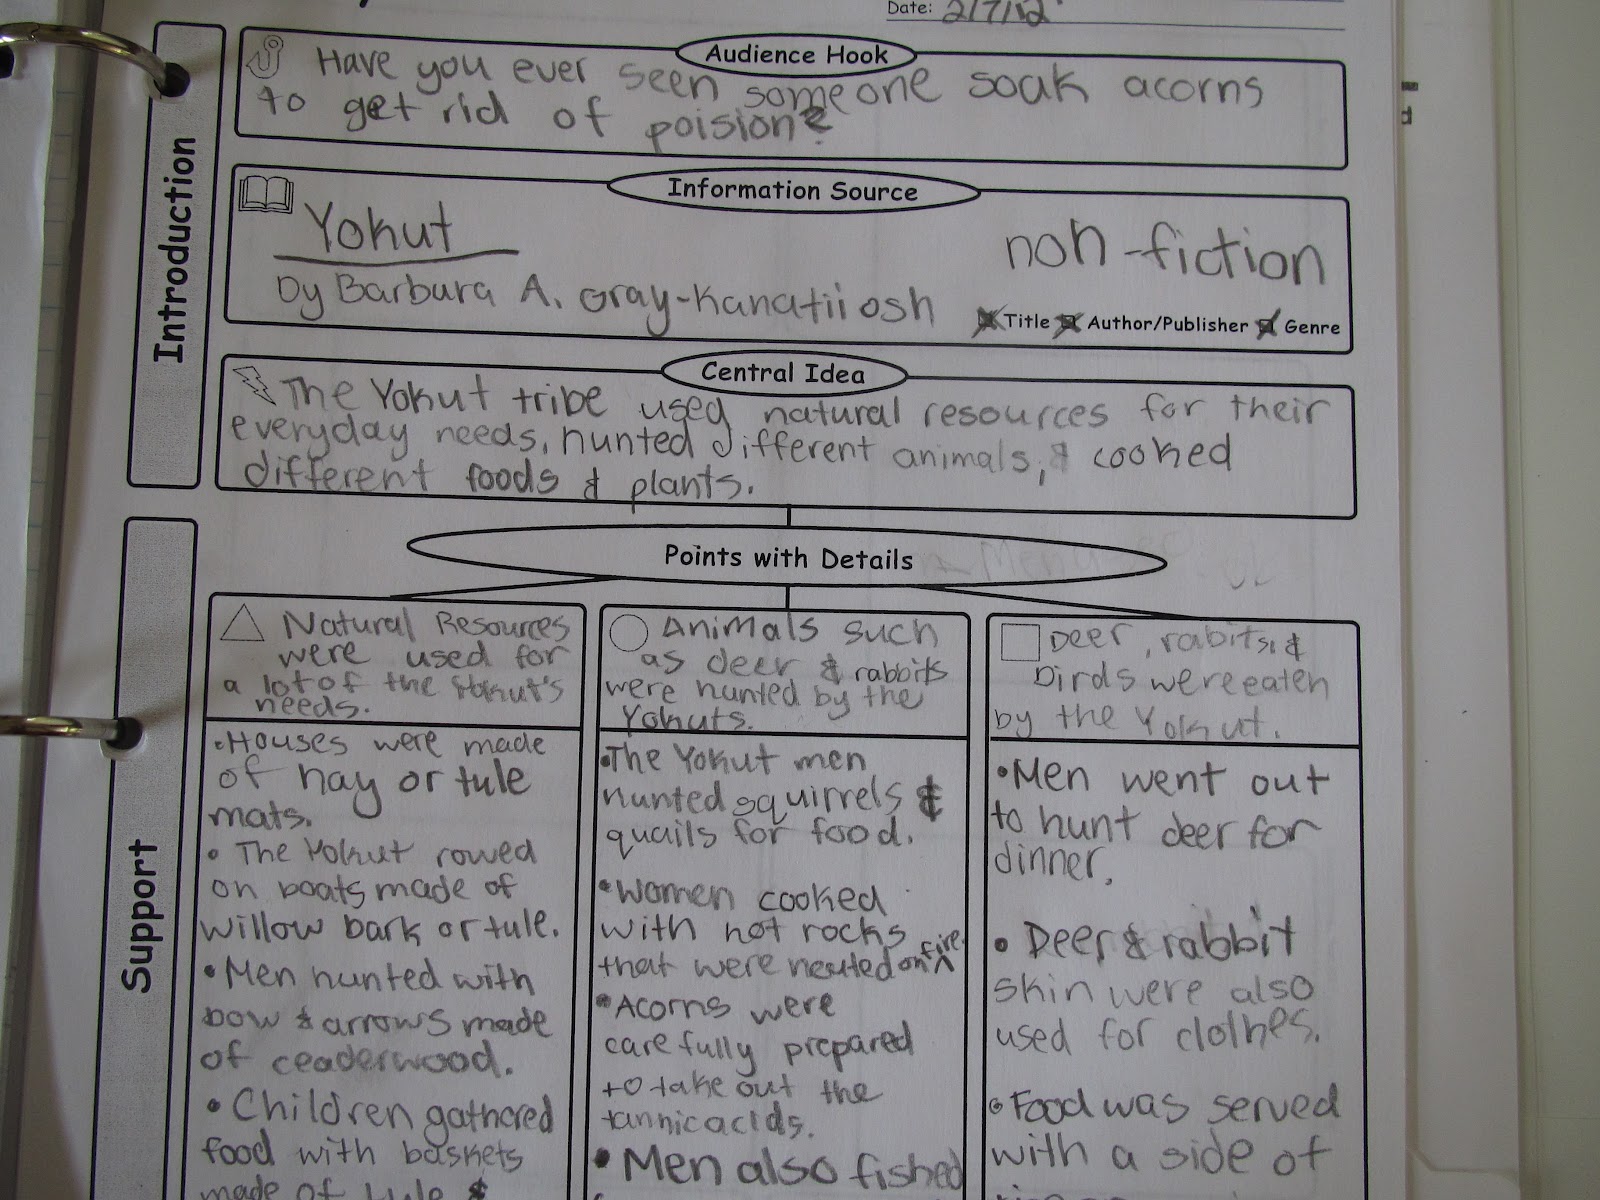 Date: 2/7/12
Introduction
Audience Hook
Have you ever seen someone soak acorns
to get rid of poision?
Information Source
Yokut
by Barbura A. Gray-Kanatiiosh
non-fiction
Title Author/Publisher Genre
Central Idea
The Yokut tribe used natural resources for their
everyday needs, hunted different animals, & cooked
different foods & plants.
Points with Details
Support
Natural Resources
were used for
a lot of the Yokut's
needs.
•Houses were made
of hay or tule
mats.
• The Yokut rowed
on boats made of
willow bark or tule.
• Men hunted with
bow & arrows made
of ceaderwood.
• Children gathered
food with baskets
made of tule &
Animals such
as deer & rabbits
were hunted by the
Yokuts.
•The Yokut men
hunted squirrels &
quails for food.
•Women cooked
with hot rocks
that were heated on fire.
•Acorns were
carefully prepared
to take out the
tannic acids.
• Men also fished
Deer, rabits, &
birds were eaten
by the Yokut.
•Men went out
to hunt deer for
dinner.
• Deer & rabbit
skin were also
used for clothes.
• Food was served
with a side of